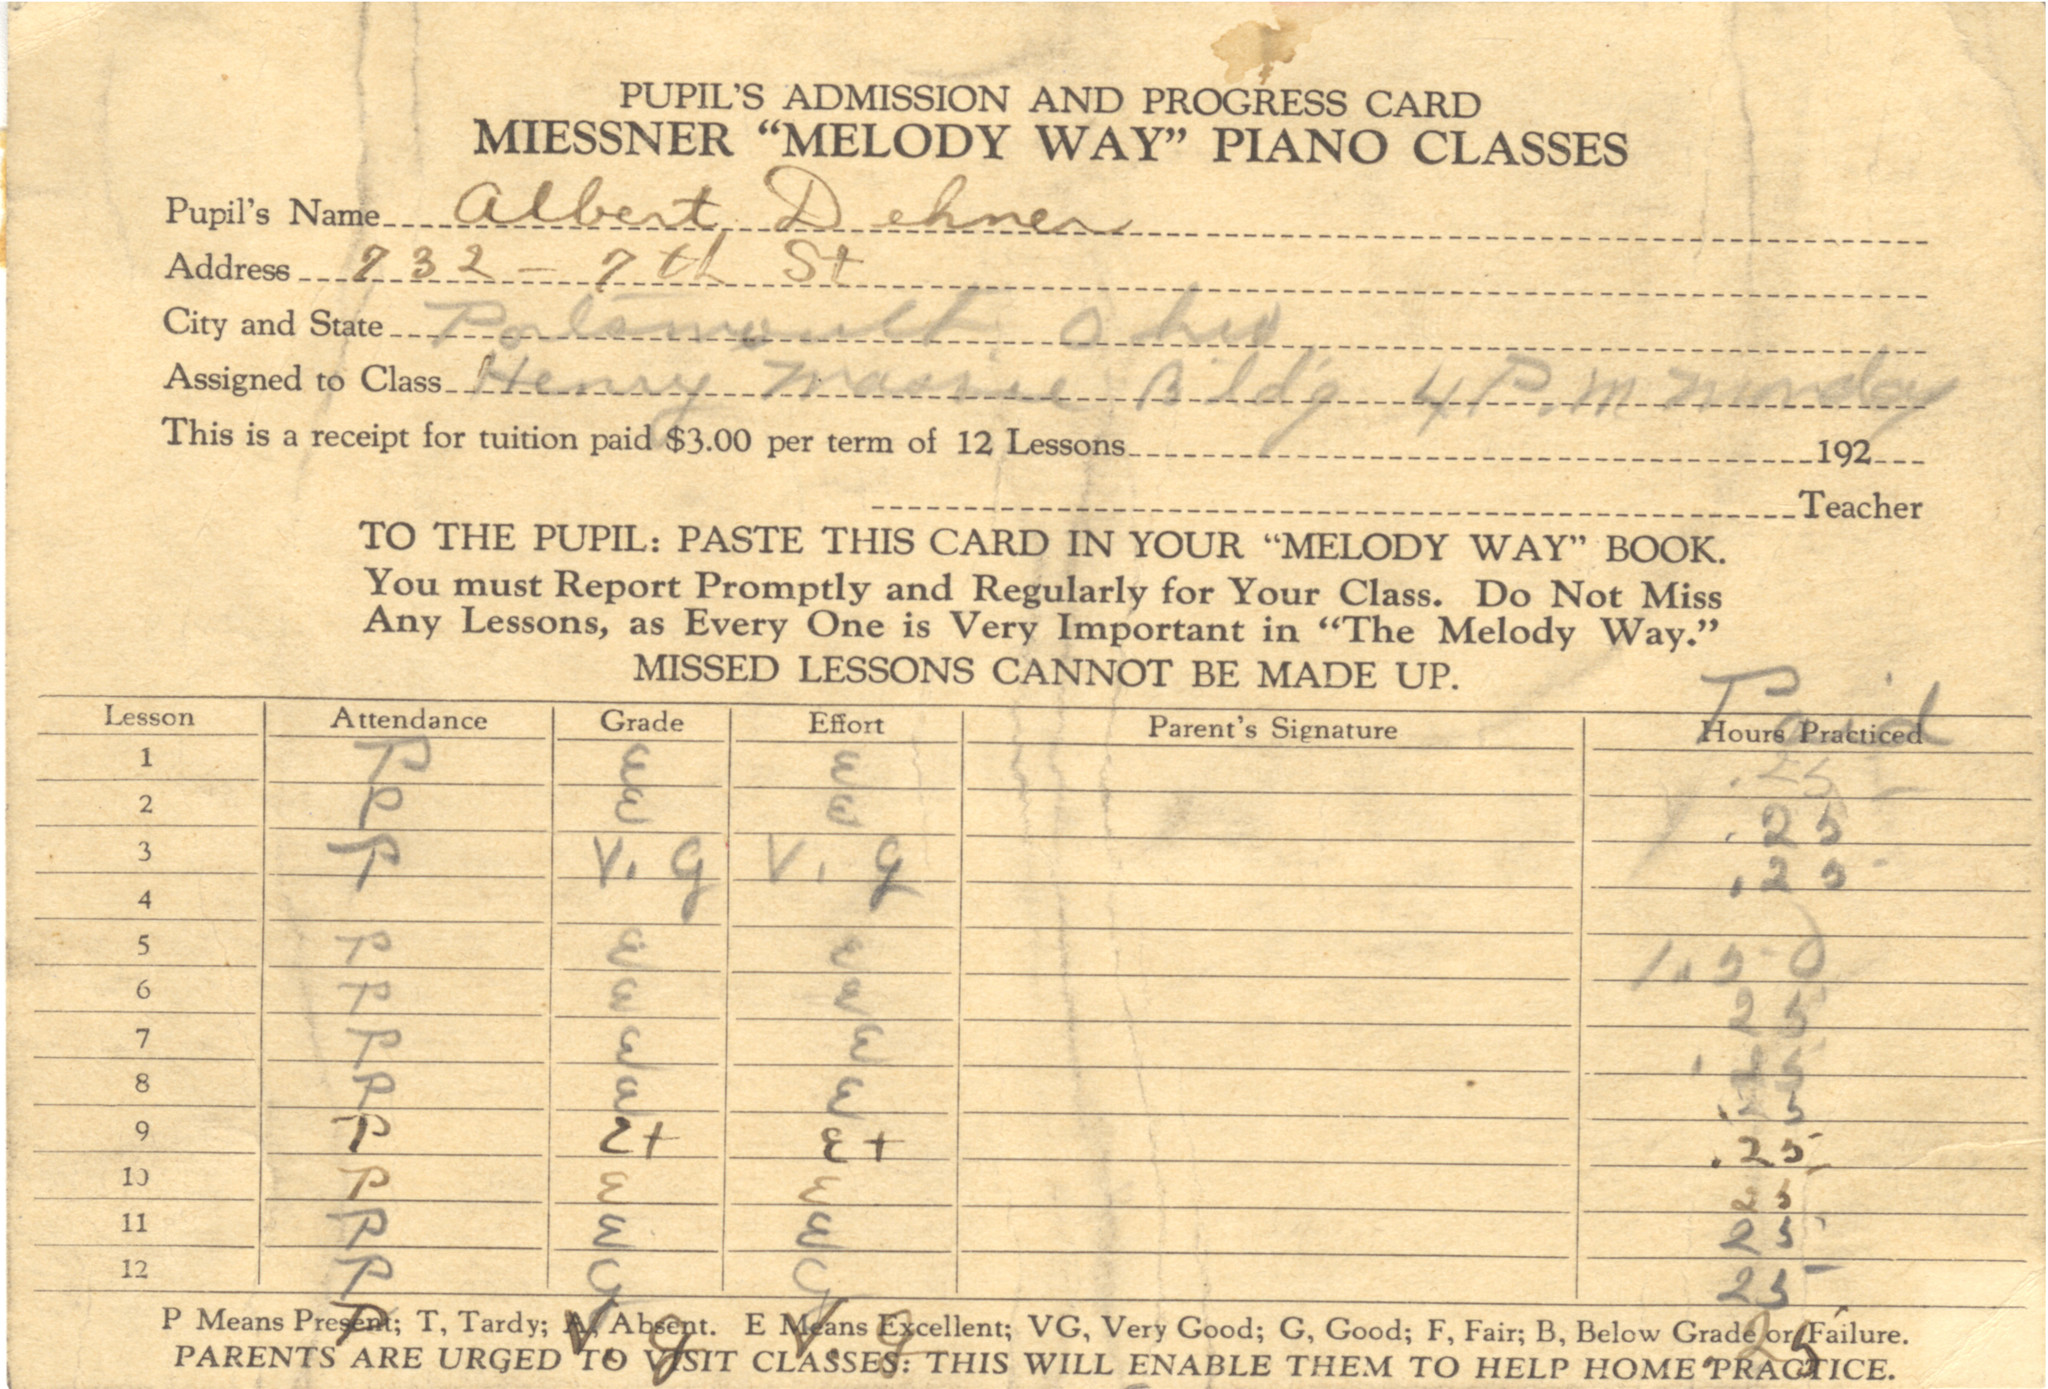 PUPIL'S ADMISSION AND PROGRESS CARD
MIESSNER “MELODY WAY” PIANO CLASSES
Pupil's Name Albert Dehner
Address 732 - 7th St
City and State Portsmouth Ohio
Assigned to Class Henry Massie Bldg 4 P.M Monday
This is a receipt for tuition paid $3.00 per term of 12 Lessons 192
Teacher
TO THE PUPIL: PASTE THIS CARD IN YOUR “MELODY WAY” BOOK.
You must Report Promptly and Regularly for Your Class. Do Not Miss
Any Lessons, as Every One is Very Important in “The Melody Way.”
MISSED LESSONS CANNOT BE MADE UP.
Paid
Lesson Attendance Grade Effort Parent's Signature Hours Practiced
1 P E E .25
2 P E E .25
3 P V. G V. G .25
4
5 P E E 1.50
6 P E E 25
7 P E E .25
8 P E E .25
9 P E+ E+ .25
10 P E E 25
11 P E E 25
12 P 25
P Means Present; T, Tardy; A, Absent. E Means Excellent; VG, Very Good; G, Good; F, Fair; B, Below Grade or Failure.
P V. g V. g .25
PARENTS ARE URGED TO VISIT CLASSES: THIS WILL ENABLE THEM TO HELP HOME PRACTICE.